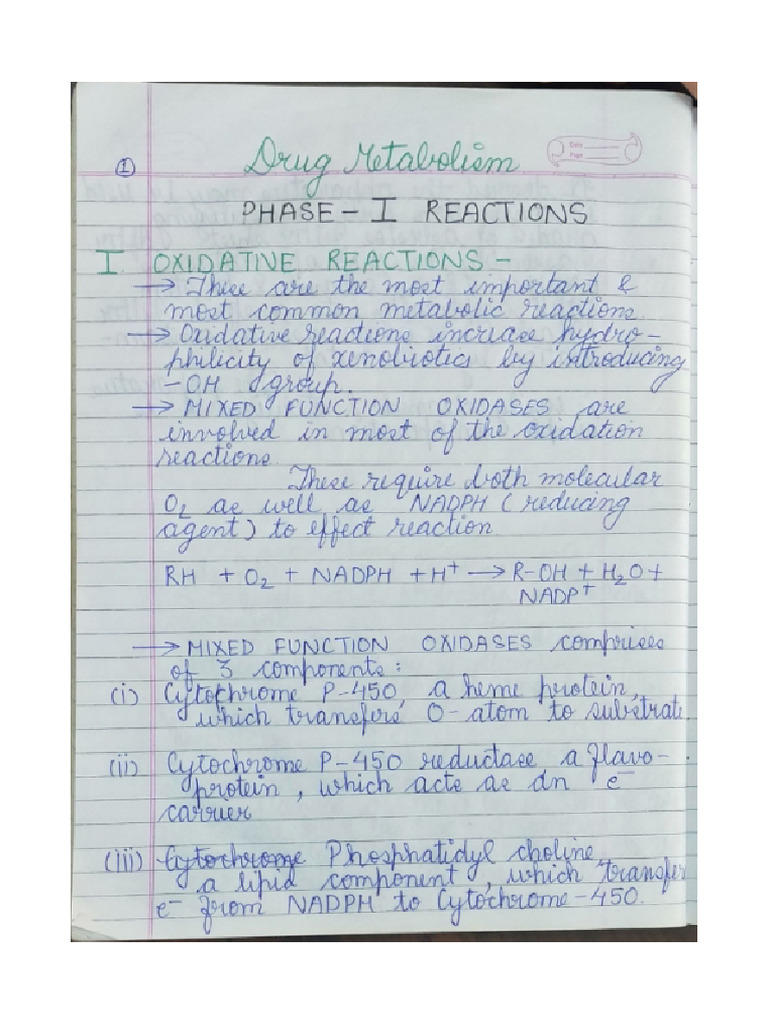 Drug Metabolism
Date
Page
①
PHASE - I REACTIONS
I OXIDATIVE REACTIONS -
→ These are the most important &
most common metabolic reactions.
→ Oxidative reactions increase hydro-
philicity of xenobiotics by introducing
- OH group.
→ MIXED FUNCTION OXIDASES are
involved in most of the oxidation
reactions.
These require both molecular
O₂ as well as NADPH (reducing
agent) to effect reaction
RH + O₂ + NADPH + H⁺ → R-OH + H₂O +
NADP⁺
→ MIXED FUNCTION OXIDASES comprises
of 3 components:
(i) Cytochrome P-450, a heme protein,
which transfers O-atom to substrate
(ii) Cytochrome P-450 reductase a flavo-
protein, which acts as an e⁻
carrier
(iii) Cytochrome Phosphatidyl choline,
a lipid component, which transfer
e⁻ from NADPH to Cytochrome-450.